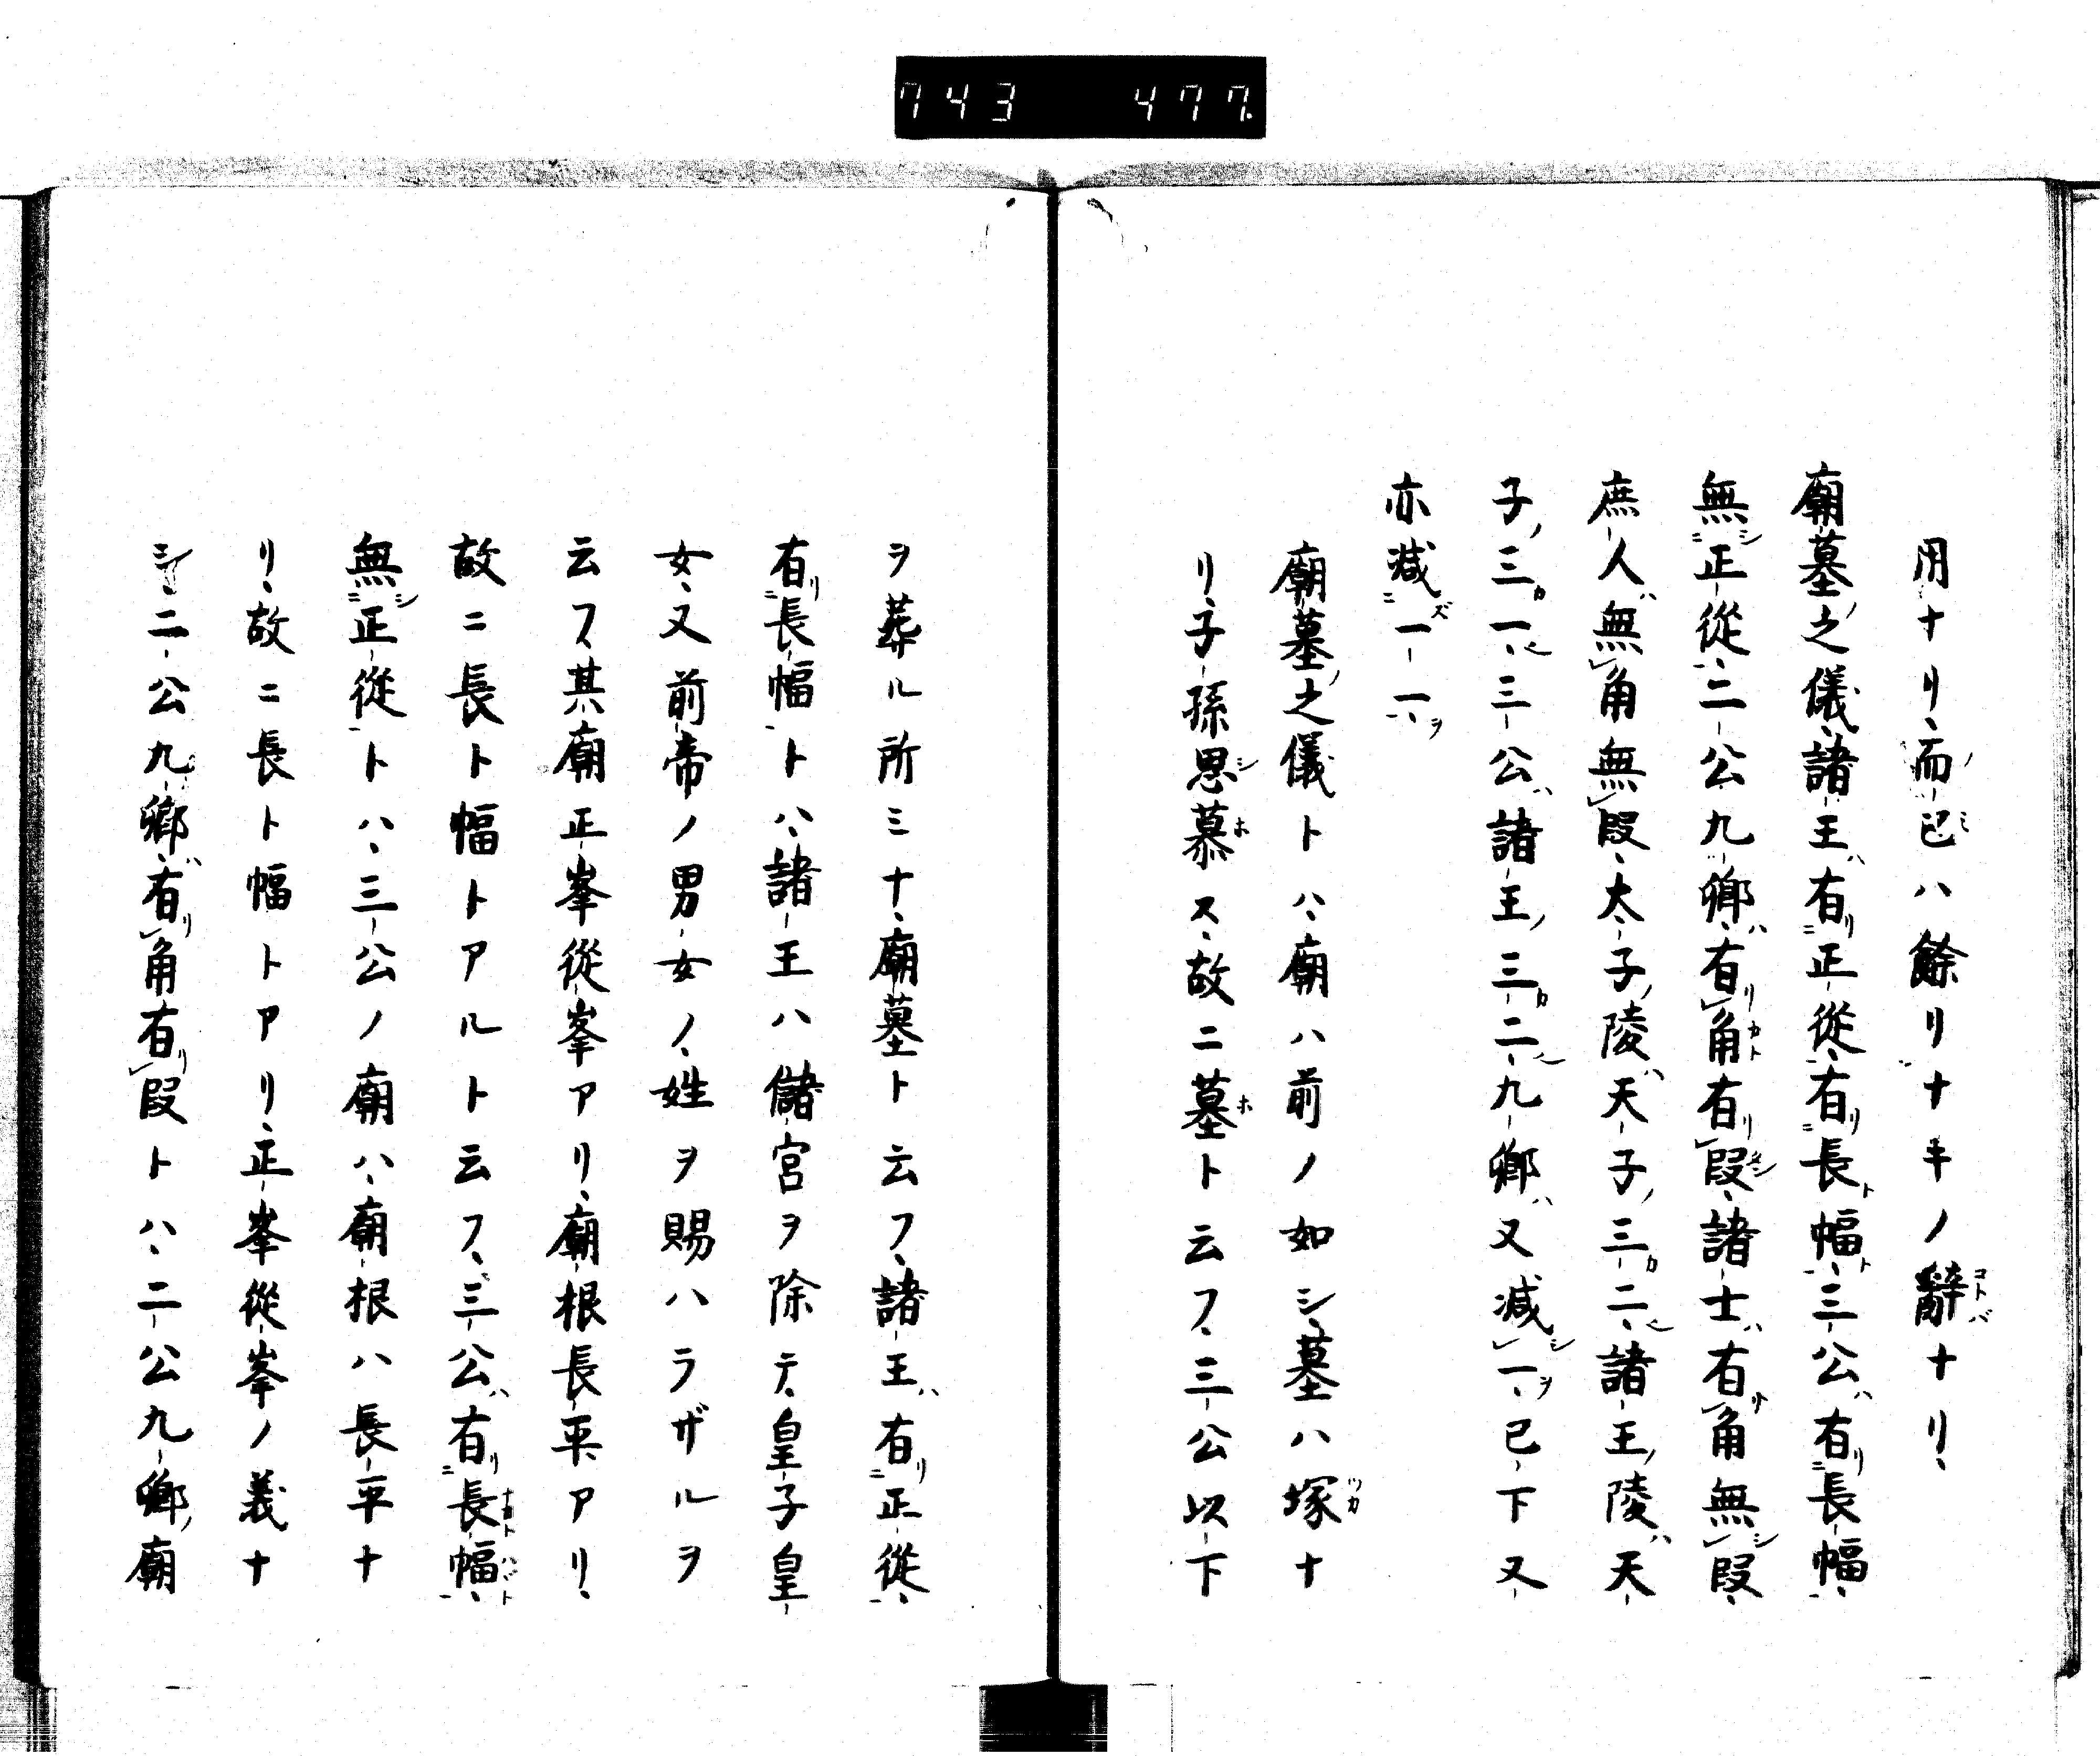 743 477.
用ナリ、而已ハ餘リナキノ辭ナリ、
廟墓之儀、諸王有正從、有長幅、三公有長幅、
無正從、二公九卿、有角有段、諸士有角無段、
庶人無角無段、太子陵天子三二、諸王陵天
子三一、三公諸王三二、九卿又減一、已下又
亦減一一、
廟墓之儀トハ、廟ハ前ノ如シ、墓ハ塚ナ
リ、子孫思慕ス、故ニ墓ト云フ、三公以下
ヲ葬ル所ミナ、廟墓ト云フ、諸王有正從、
有長幅トハ、諸王ハ儲宮ヲ除テ、皇子皇
女、又前帝ノ男女ノ、姓ヲ賜ハラザルヲ
云フ、其廟正峯從峯アリ、廟根長平アリ、
故ニ長ト幅トアルト云フ、三公有長幅、
無正從トハ、三公ノ廟ハ、廟根ハ長平ナ
リ、故ニ長ト幅トアリ、正峯從峯ノ義ナ
シ、二公九卿、有角有段トハ、二公九卿廟